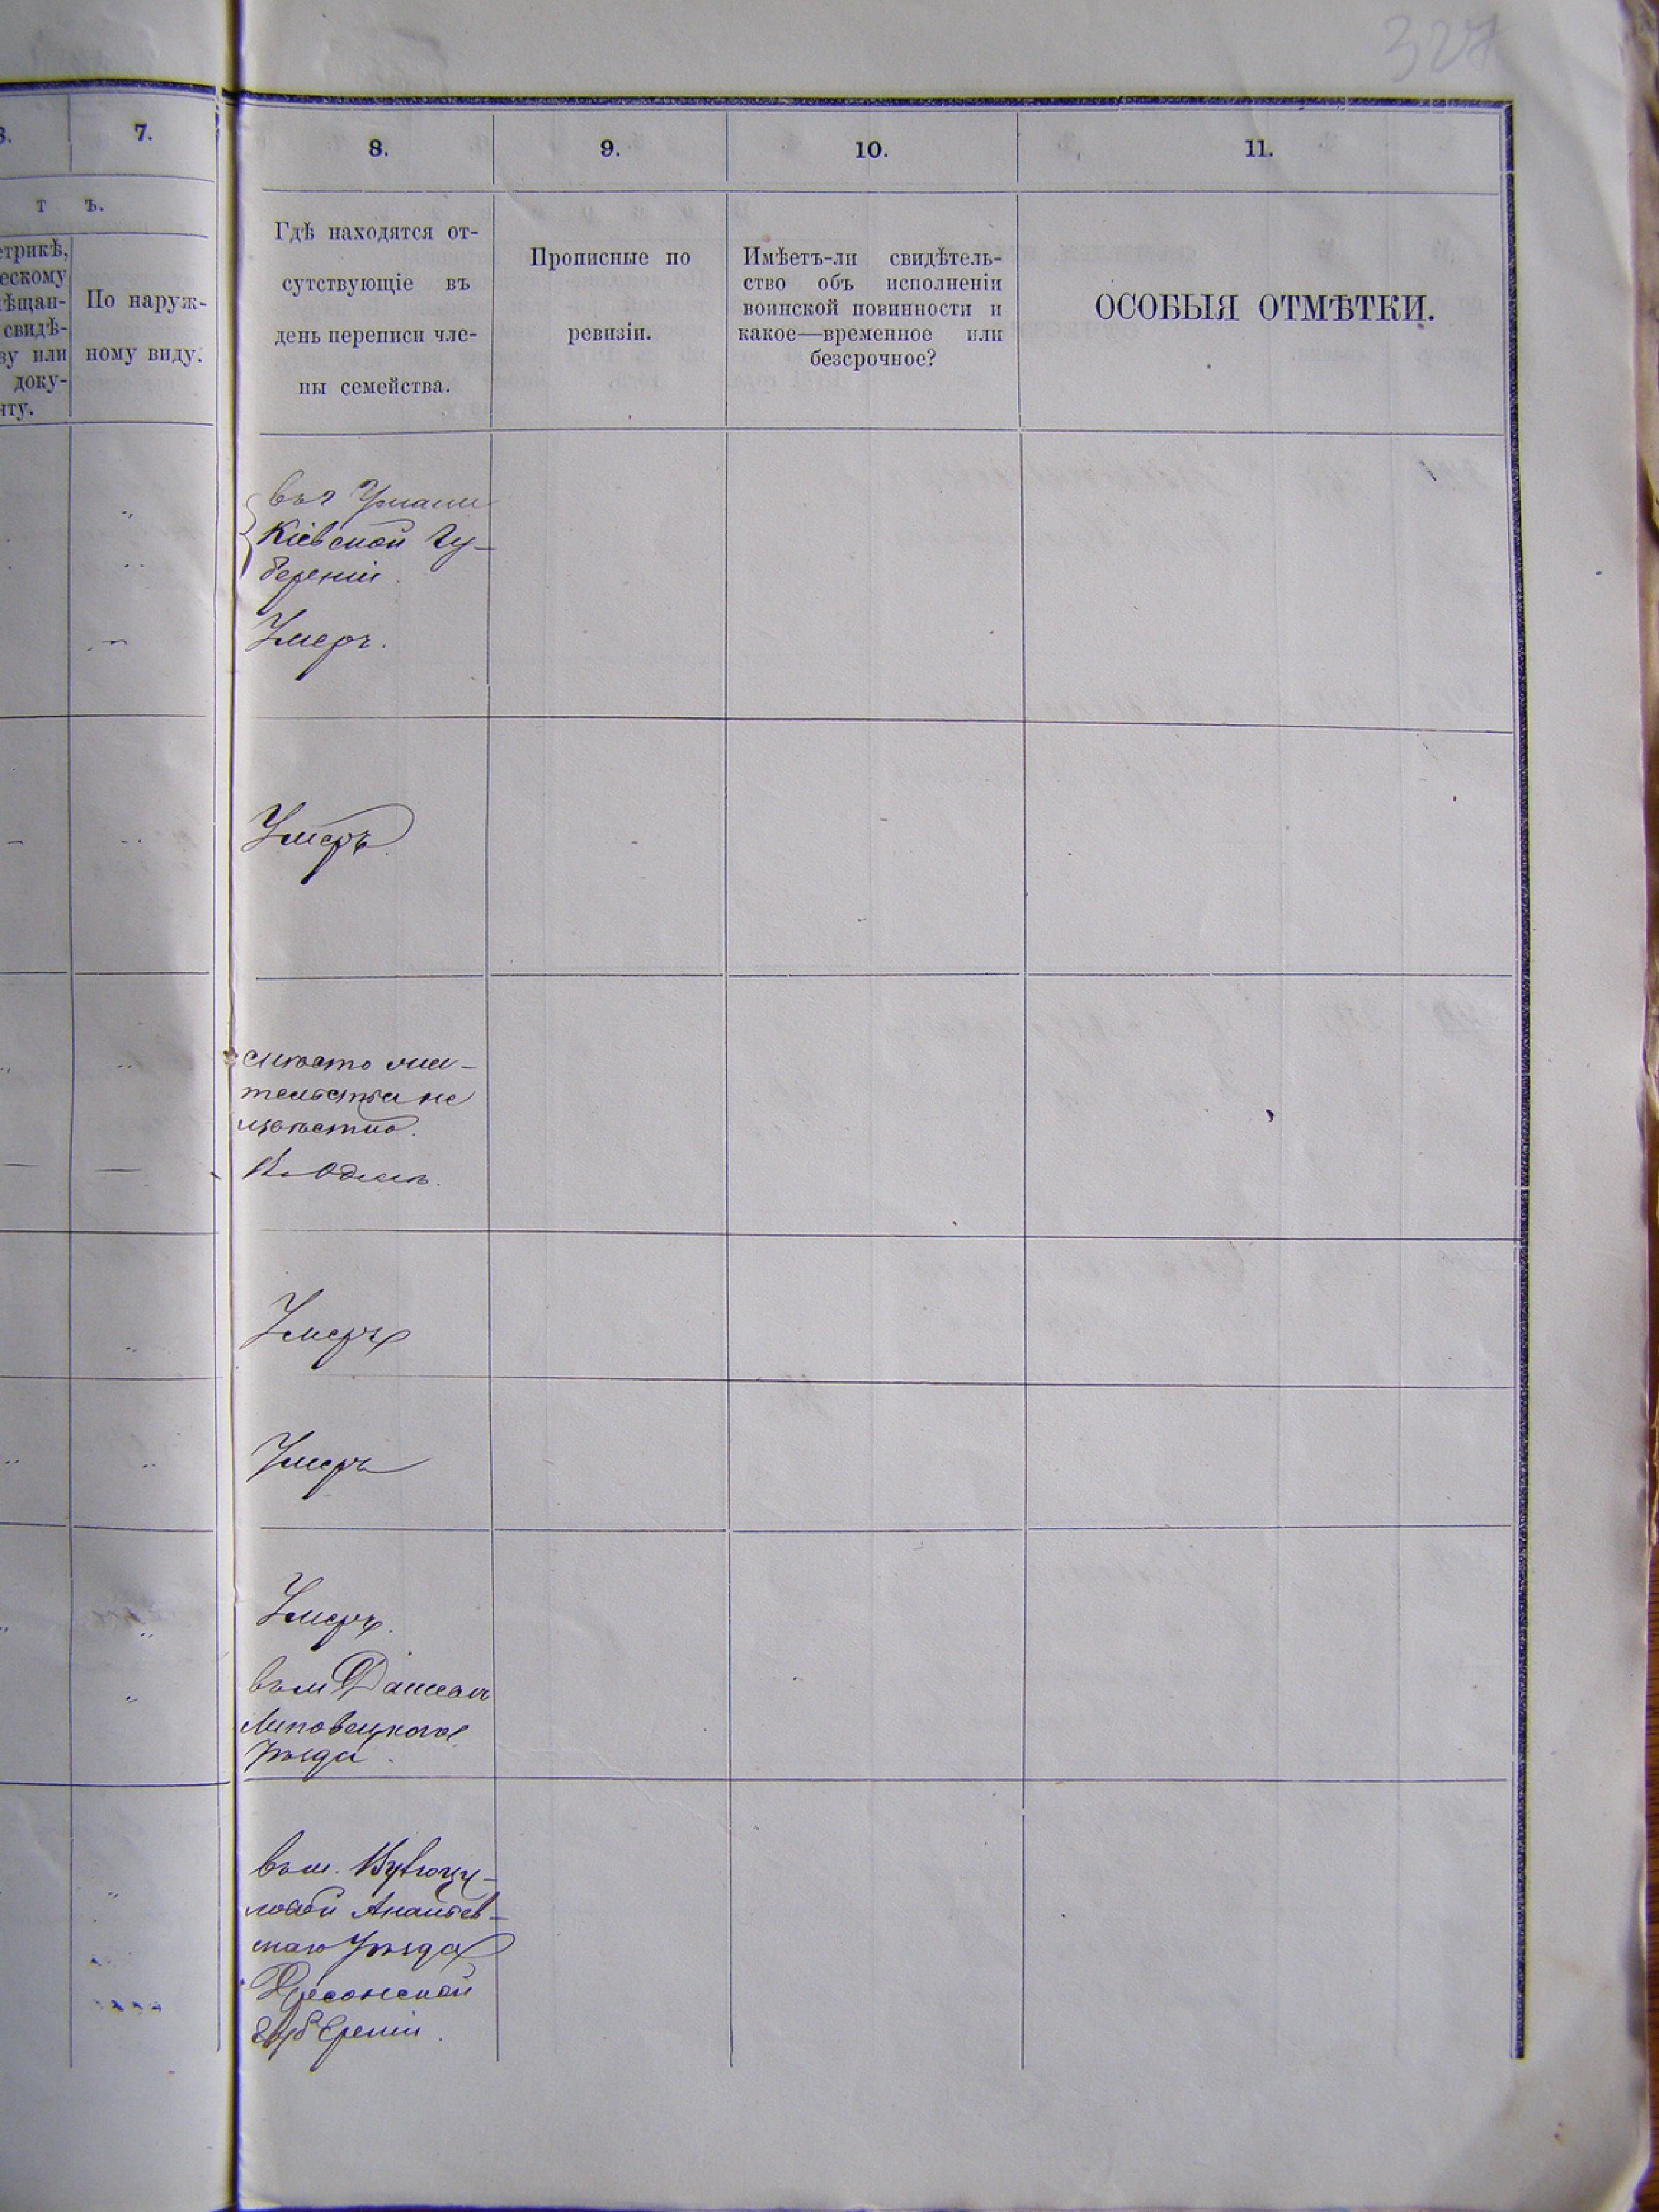 327
7.
8.
9.
10.
11.
т ъ.
етрикѣ,
ескому
ѣщан-
свидѣ-
ву или
доку-
нту.
По наруж-
ному виду.
Гдѣ находятся от-
сутствующіе въ
день переписи чле-
ны семейства.
Прописные по
ревизіи.
Имѣетъ-ли свидѣтель-
ство объ исполненіи
воинской повинности и
какое—временное или
безсрочное?
ОСОБЫЯ ОТМѢТКИ.
въ г Умани
Кіевской Гу-
берніи.
Умеръ.
Умеръ
мѣсто жи-
тельства не
извѣстно.
Въ Одессѣ.
Умеръ
Умеръ
Умеръ.
въ м Дашевѣ
Липовецкаго
Уѣзда.
въ м.
Ананьев-
скаго Уѣзда
Херсонской
Губерніи.